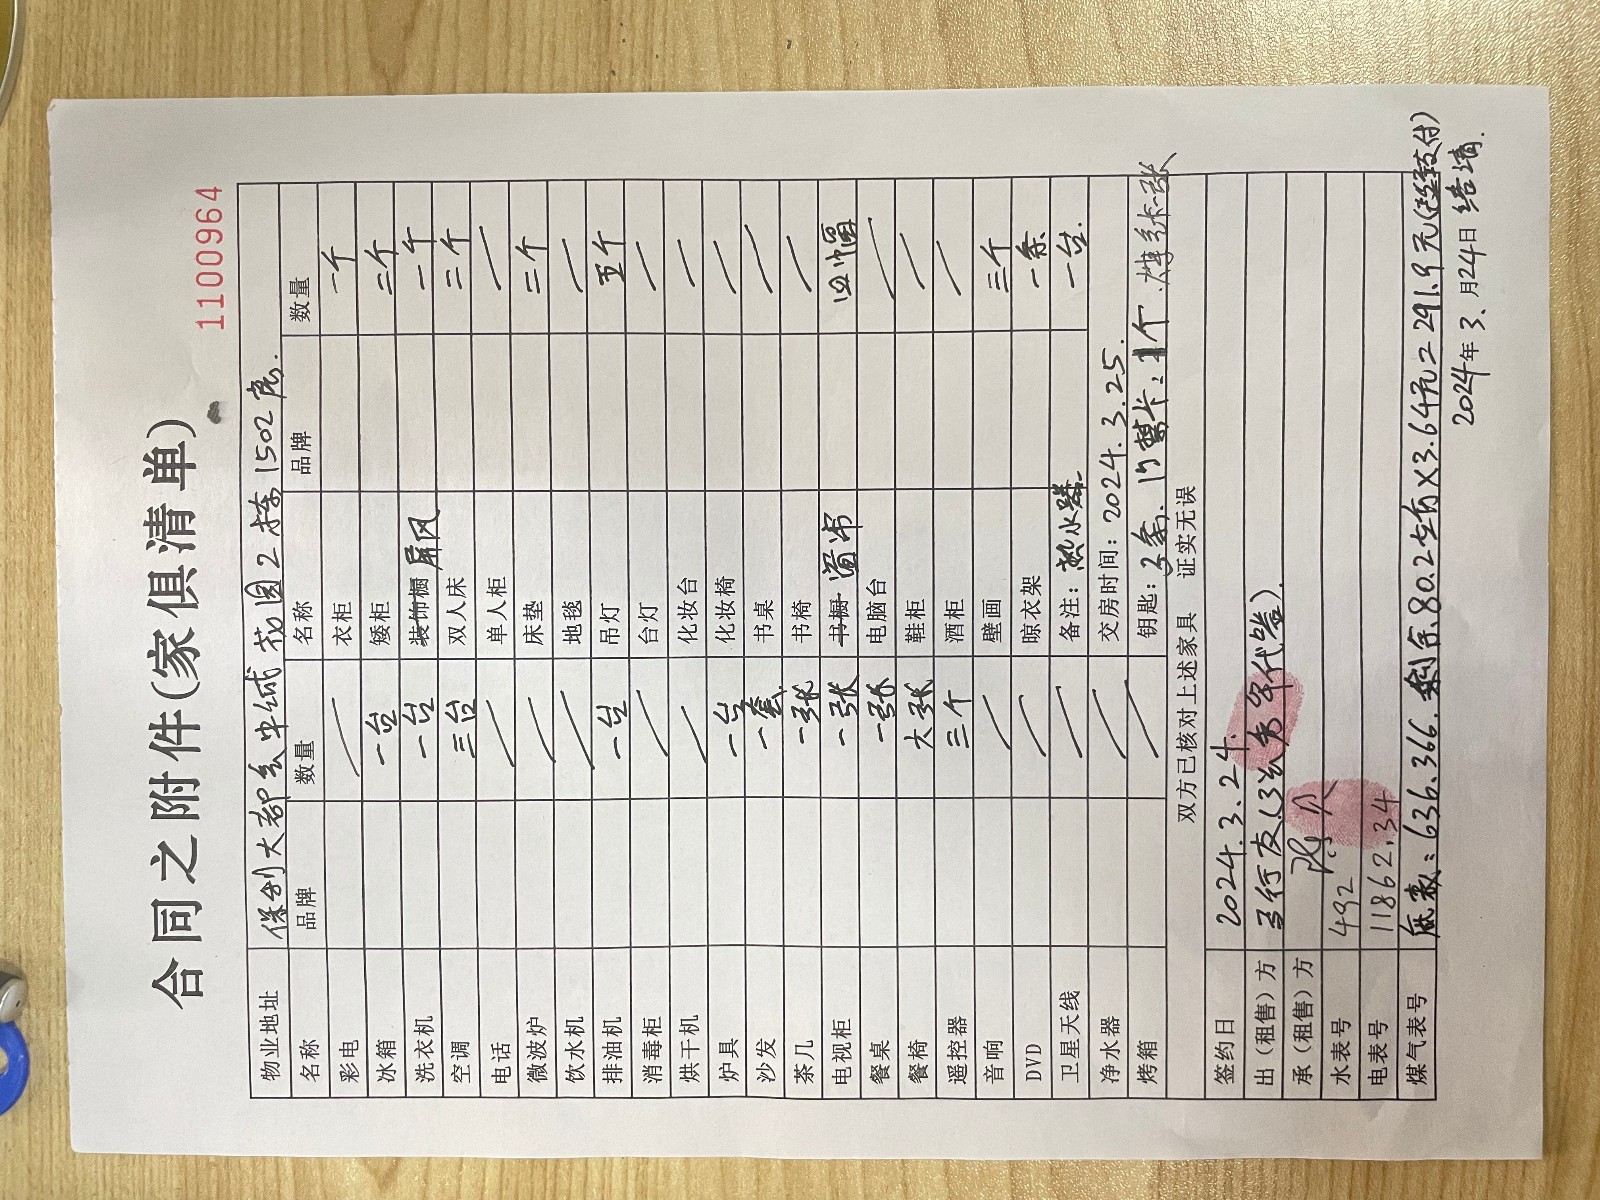 合同之附件(家俱清单)
1100964
物业地址 保利大都会中城花园2栋1502房.
名称 品牌 数量 名称 品牌 数量
彩电 / 衣柜 一个
冰箱 一台 矮柜 三个
洗衣机 一台 装饰橱 屏风 一个
空调 三台 双人床 二个
电话 / 单人柜 /
微波炉 / 床垫 三个
饮水机 / 地毯 /
排油机 一台 吊灯 五个
消毒柜 / 台灯 /
烘干机 / 化妆台 /
炉具 一台 化妆椅 /
沙发 一套 书桌 /
茶几 一张 书椅 /
电视柜 一张 书橱 窗帘 四幅
餐桌 一张 电脑台 /
餐椅 六张 鞋柜 /
遥控器 三个 酒柜 /
音响 / 壁画 三个
DVD / 晾衣架 一条
卫星天线 / 备注: 热水器 一台.
净水器 / 交房时间: 2024.3.25.
烤箱 / 钥匙: 3条. 门禁卡: 1个. 煤气卡一张
双方已核对上述家具 证实无误
签约日 2024.3.24.
出(租售)方
承(租售)方
水表号 492
电表号 11862.34
煤气表号 底表: 636.366. 剩余80.2左右×3.64元=291.9元(已经支付)
2024年3、月24日结清.